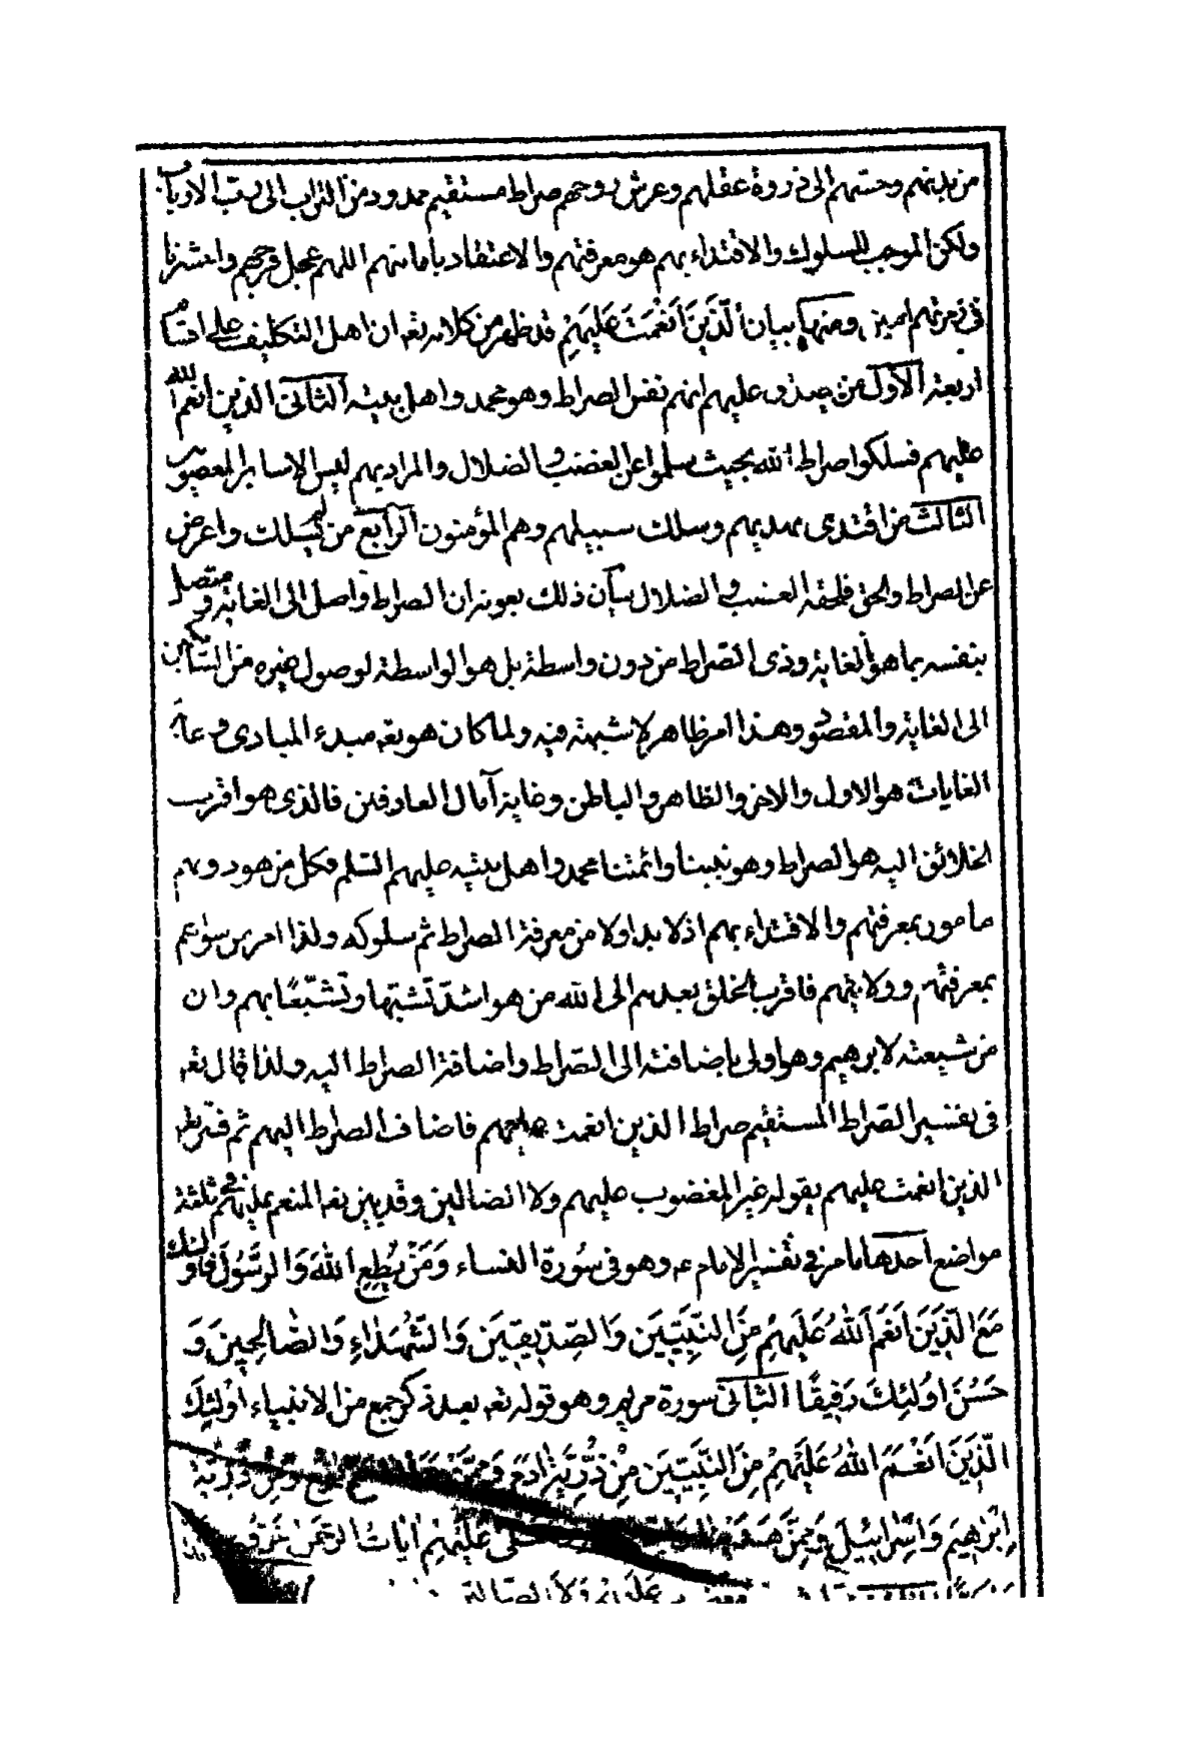 من بدنهم وحسهم الى ذروة عقلهم وعرش روحهم صراط مستقيم ممدود من التراب الى رب الارباب
ولكن الموجب للسلوك والاقتداء بهم هو معرفتهم والاعتقاد بامامتهم اللهم عجل فرجهم واحشرنا
فى زمرتهم امين ومنها بيان الَّذِينَ أَنْعَمْتَ عَلَيْهِمْ قد ظهر من كلامه تعه ان اهل التكليف على اقسام
اربعة الاول من صدق عليهم انهم نفس الصراط وهو محمد واهل بيته الثانى الذين أنعم الله
عليهم فسلكوا صراط الله بحيث سلموا عن الغضب والضلال والمراد بهم ليس الا سائر المعصومين
الثالث من اقتدى بهديهم وسلك سبيلهم وهم المؤمنون الرابع من لم يسلك واعرض
عن الصراط والحق فلحقه الغضب والضلال بيان ذلك بعونه ان الصراط واصل الى الغاية ومتصل
بنفسه بما هو الغاية وذى الصراط من دون واسطة بل هو الواسطة لوصول غيره من السالكين
الى الغاية والمقصود وهذا امر ظاهر لا شبهة فيه ولما كان هو تعه مبدء المبادى وغاية
الغايات هو الاول والاخر والظاهر والباطن وغاية آمال العارفين فالذى هو اقرب
الخلائق اليه هو الصراط وهو نبينا وائمتنا محمد واهل بيته عليهم السلم فكل من هو دونهم
مامور بمعرفتهم والاقتداء بهم اذ لا بد اولا من معرفة الصراط ثم سلوكه ولذا امر من سواهم
بمعرفتهم وولايتهم فاقرب الخلق بعدهم الى الله من هو اشد تشبّها وتشيّعًا بهم وان
من شيعته لابرهيم وهو اولى باضافته الى الصّراط واضافة الصراط اليه ولذا قال تعه
فى تفسير الصّراط المستقيم صراط الذين انعمت عليهم فاضاف الصراط اليهم ثم فسّر
الذين انعمت عليهم بقوله غير المغضوب عليهم ولا الضالين وقد بين تعه المنعم عليهم فى ثلثة
مواضع احدها ما مر فى تفسير الامام ع وهو فى سُورة النساء وَمَنْ يُطِعِ اللهَ وَالرَّسُولَ فَاُولئِكَ
مَعَ الَّذِينَ اَنْعَمَ اللهُ عَلَيْهِمْ مِنَ النَّبِيّينَ وَالصِّدّيقينَ وَالشُّهَدَاءِ وَالصَّالِحِينَ وَ
حَسُنَ اوُلئِكَ رَفِيقًا الثانى سورة مريم وهو قوله تعه بعد ذكر جمع من الانبياء اُولئِكَ
الَّذِينَ اَنْعَمَ اللهُ عَلَيْهِمْ مِنَ النَّبِيّينَ مِنْ ذُرِّيَّةِ ادَمَ وَمِمَّنْ وَمِنْ ذُرِّيَّةِ
اِبْرهِيمَ وَاِسْرائيلَ وَمِمَّنْ هَدَيْنَا عَلَيْهِمْ ايَاتُ الرَّحْمنِ خَرُّوا
عَلَيْهِمْ وَلاَ الضَّالّينَ